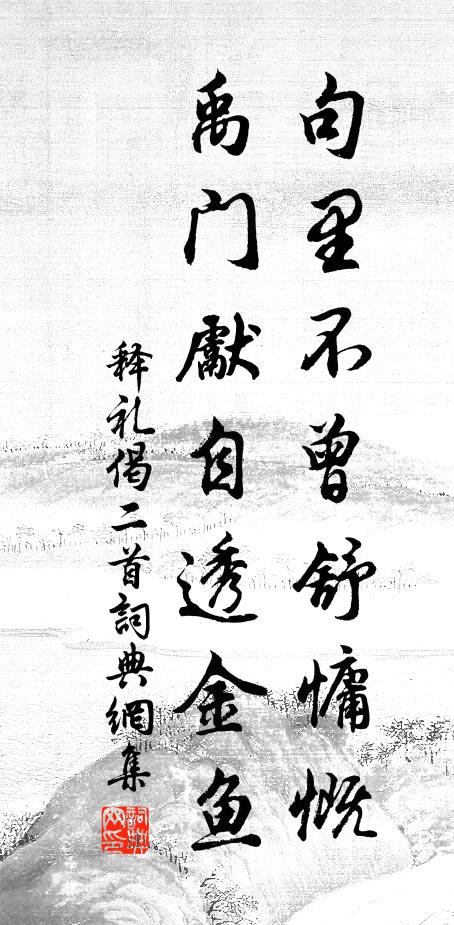 句里不曾舒慵慨
禹门獻自透金鱼
释礼偈二首詞典網集